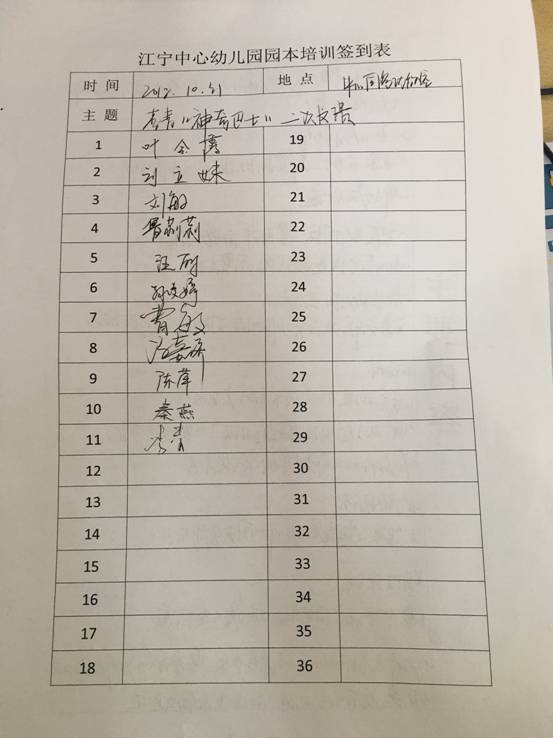 江宁中心幼儿园园本培训签到表
时 间 2018.10.31 地 点
主 题 "神奇巴士" 二次
1 叶 19
2 刘 立 妹 20
3 刘敏 21
4 曹莉莉 22
5 汪 23
6 孙 婷 24
7 曹 敏 25
8 26
9 陈萍 27
10 秦燕 28
11 李青 29
12 30
13 31
14 32
15 33
16 34
17 35
18 36